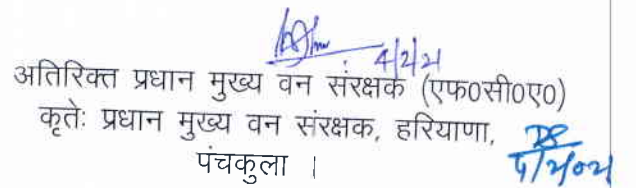 4/2/21
अतिरिक्त प्रधान मुख्य वन संरक्षक (एफ0सी0ए0)
कृतेः प्रधान मुख्य वन संरक्षक, हरियाणा,
पंचकुला ।